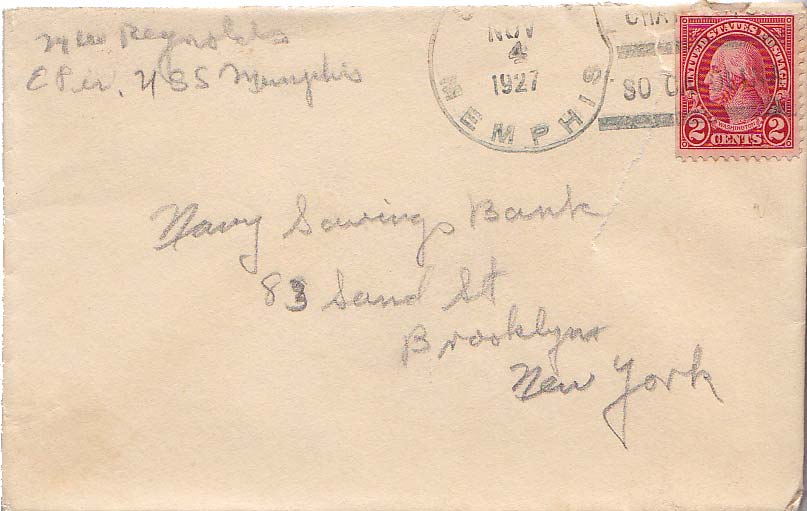 M W Reynolds
C Div, USS Memphis
NOV
4
1927
MEMPHIS
UNITED STATES POSTAGE
WASHINGTON
2 CENTS 2
Navy Savings Bank
83 Sand St
Brooklyn
New York